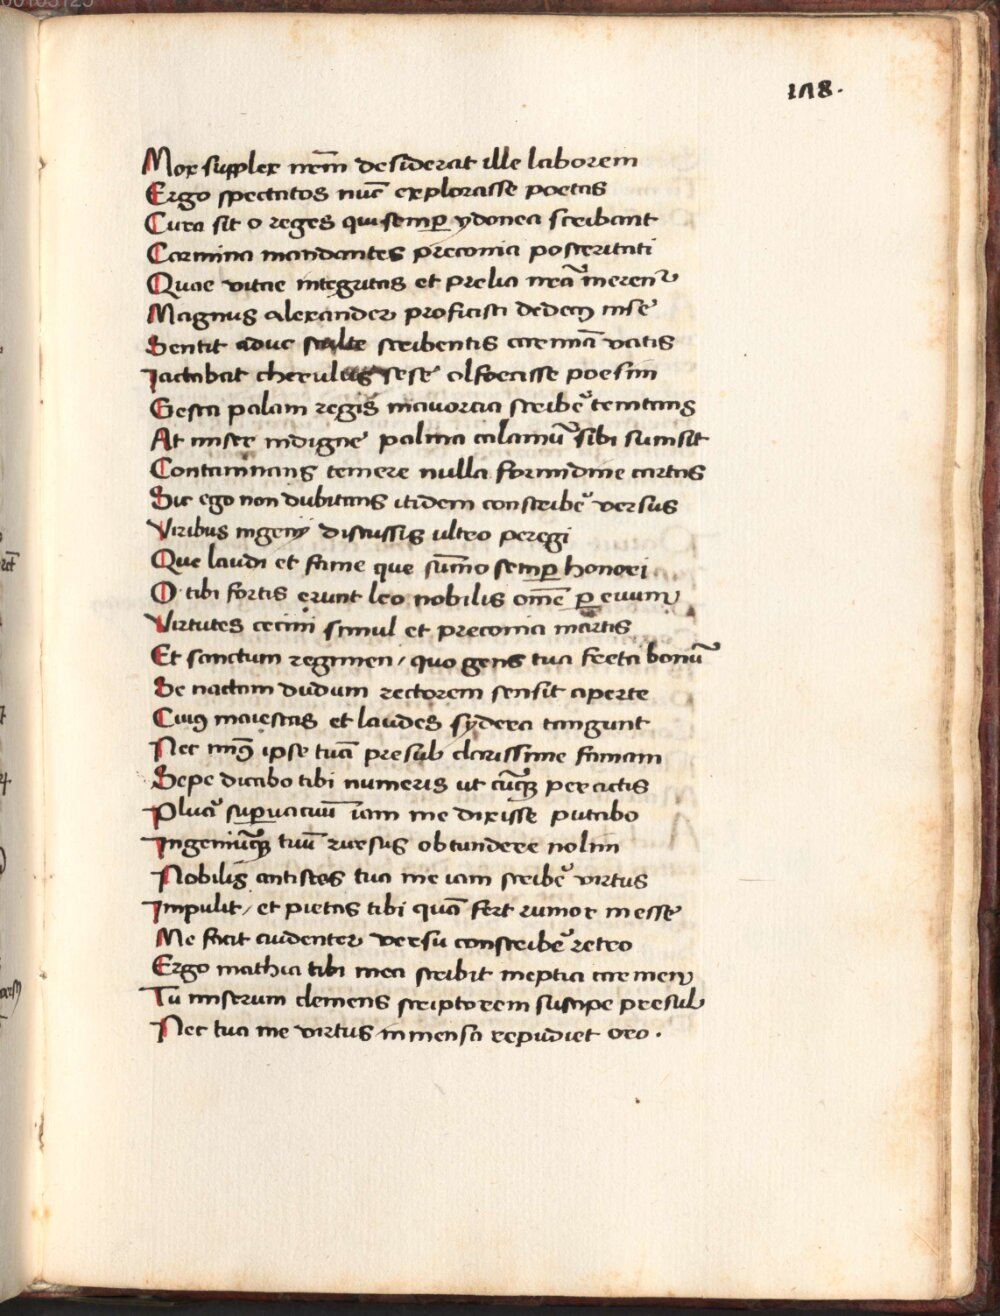 118.
Mox supplex nr̄m desiderat ille laborem
Ergo spectatos nūc explorasse poetas
Cura sit o reges qui semꝑ ydonea scribant
Carmina mandantes preconia posteritati
Quae vitae integritas et prelia merent᷑
Magnus alexander proficisti dedecꝰ
Sentit aduc stulte scribentis carmina vatis
Iactabat cherulus sese olfecisse poesim
Gesta palam regis mavorcia scribē temtans
At miser indigne palma calamū sibi sumsit
Contaminans temere nulla formidine cartas
Sic ego non dubitans itidem conscribē versus
Viribus ingenij discussis ultro peregi
Que laudi et fame que sūmo semꝑ honori
O tibi fortis erunt leo nobilis om̄e ꝑ euum
Virtutes cecini simul et preconia martis
Et sanctum regimen / quo gens tua freta bonū
Se nactam dudum rectorem sensit aperte
Cuiꝰ maiestas et laudes sydera tangunt
Nec ipse tuā presul clarissime famam
Sepe dicabo tibi numeris ut cūqꝫ peractis
Plura suꝑuacuū iam me dixisse putabo
Ingeniūqꝫ tuū rursus obtundere nolim
Nobilis antistes tua me iam scribē virtus
Impulit / et pietas tibi quā fert rumor messe
Me facit audenter versu conscribē retro
Ergo mathia tibi mea scribit ineptia carmen
Tu miserum clemens scriptorem suscipe presul
Nec tua me virtus immensa repudiet oro .